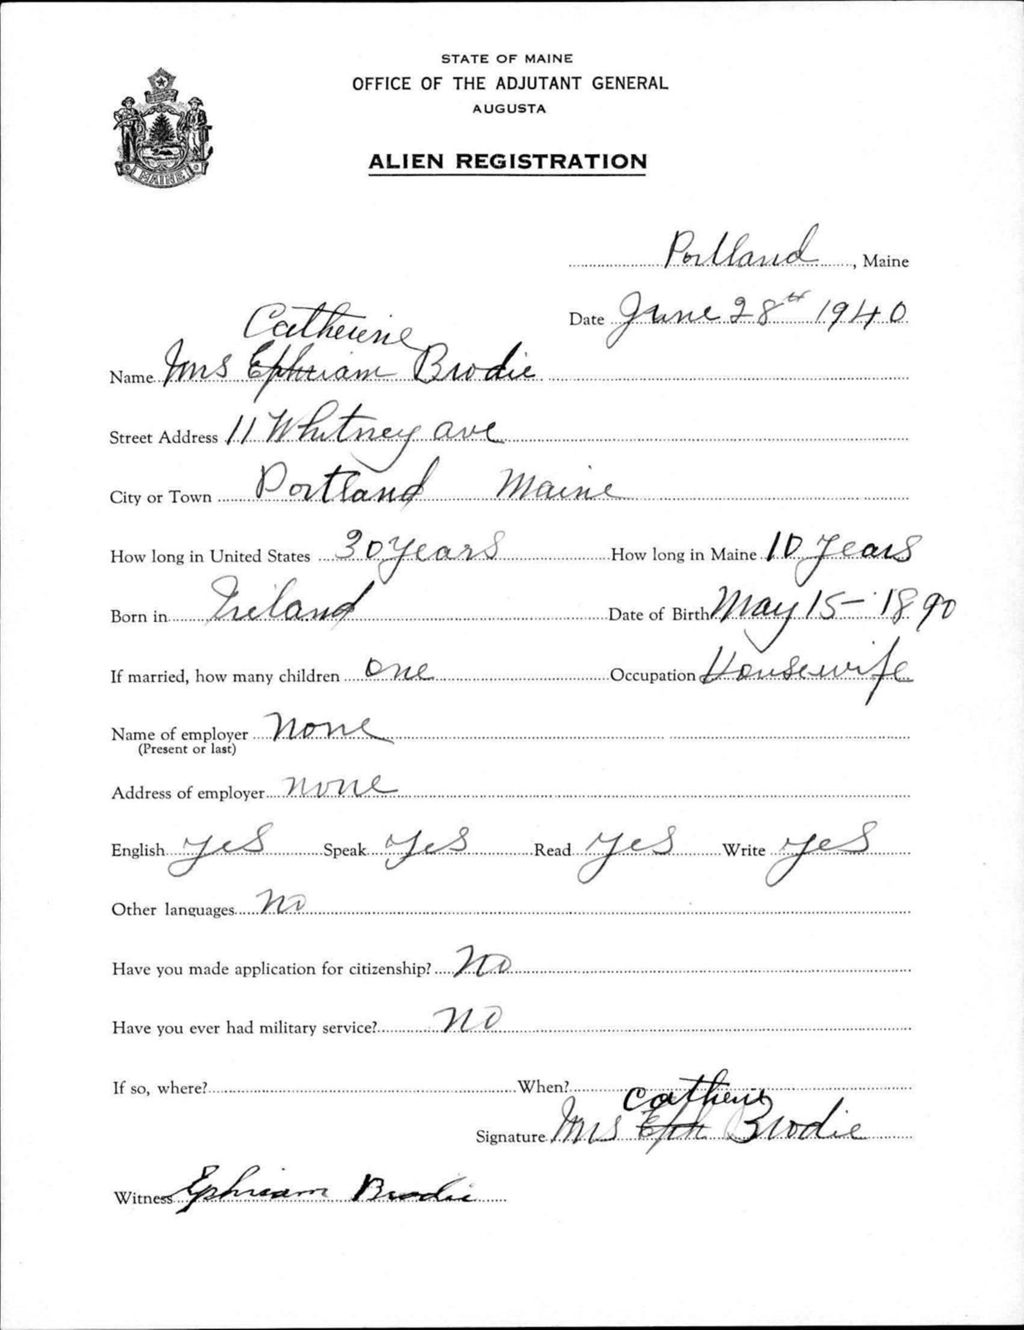 STATE OF MAINE
OFFICE OF THE ADJUTANT GENERAL
AUGUSTA
ALIEN REGISTRATION
MAINE
Portland, Maine
Date June 28th 1940
Catherine
Name Mrs Ephriam Brodie
Street Address 11 Whitney ave
City or Town Portland Maine
How long in United States 30 years How long in Maine 10 years
Born in Ireland Date of Birth May 15-1890
If married, how many children one Occupation Housewife
Name of employer none
(Present or last)
Address of employer none
English yes Speak yes Read yes Write yes
Other languages no
Have you made application for citizenship? no
Have you ever had military service? no
If so, where? When?
Catherine
Signature Mrs Eph Brodie
Witness Ephriam Brodie